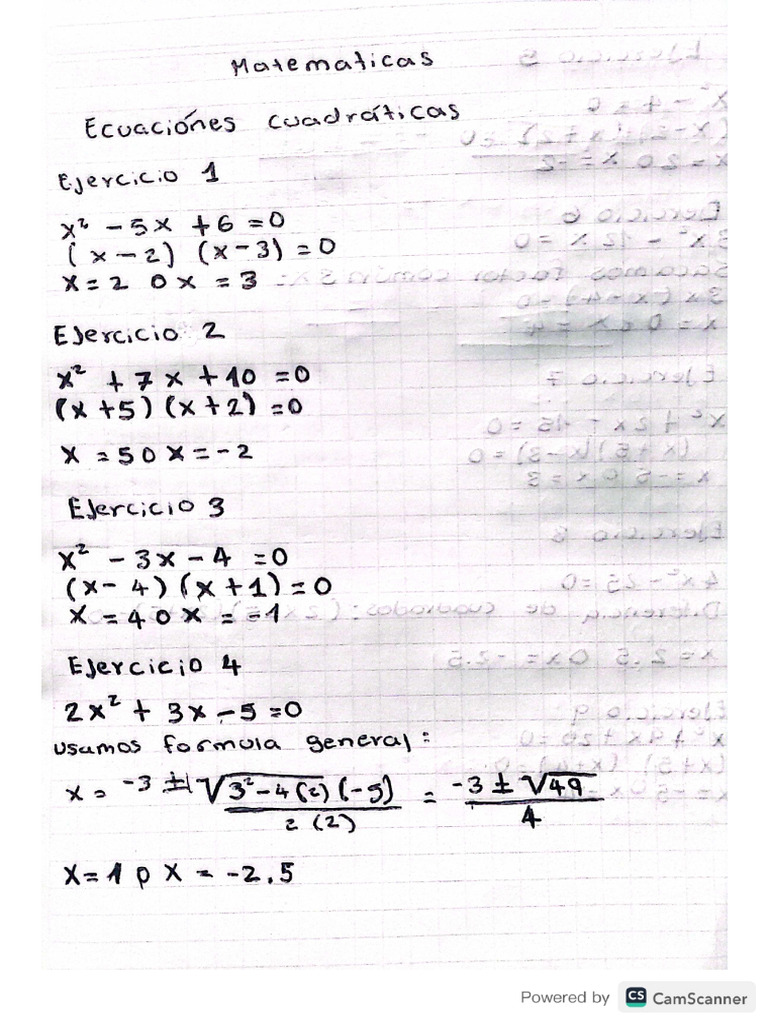 Matematicas
Ecuaciónes cuadráticas
Ejercicio 1
x² - 5x + 6 = 0
(x - 2) (x - 3) = 0
x = 2 o x = 3
Ejercicio 2
x² + 7x + 10 = 0
(x + 5) (x + 2) = 0
x = 5 o x = -2
Ejercicio 3
x² - 3x - 4 = 0
(x - 4) (x + 1) = 0
x = 4 o x = -1
Ejercicio 4
2x² + 3x - 5 = 0
usamos formula general:
x = -3 ± √3² - 4(2)(-5) / 2(2) = -3 ± √49 / 4
x = 1 o x = -2.5
Powered by CS CamScanner